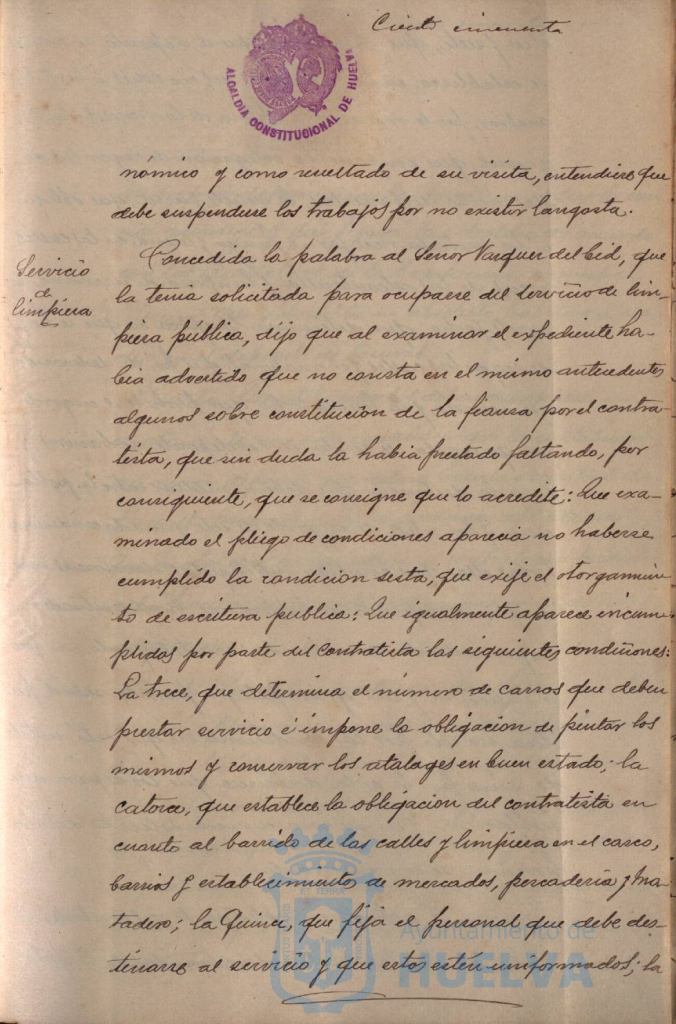 Ciento cincuenta
ALCALDIA CONSTITUCIONAL DE HUELVA
nómico y como resultado de su visita, entendiere que
debe suspenderse los trabajos por no existir langosta.
Servicio
de
limpieza
Concedida la palabra al Señor Vazquez del Cid, que
la tenia solicitada para ocuparse del servicio de lim-
pieza pública, dijo que al examinar el expediente ha-
bia advertido que no consta en el mismo antecedentes
algunos sobre constitucion de la fianza por el contra-
tista, que sin duda la habia prestado faltando, por
consiguiente, que se consigne que lo acredite: Que exa-
minado el pliego de condiciones aparecia no haberse
cumplido la condicion sesta, que exije el otorgamien-
to de escritura publica: Que igualmente aparece incum-
plidas por parte del Contratista las siguientes condiciones:
La trece, que determina el número de carros que deben
prestar servicio é impone la obligacion de pintar los
mismos y conservar los atalages en buen estado; la
catorce, que establece la obligacion del contratista en
cuanto al barrido de las calles y limpieza en el casco,
barrios y establecimientos de mercados, pescaderia y Ma-
tadero; la Quince, que fija el personal que debe des-
tinarse al servicio y que estos estén uniformados; la
Ayuntamiento de
HUELVA